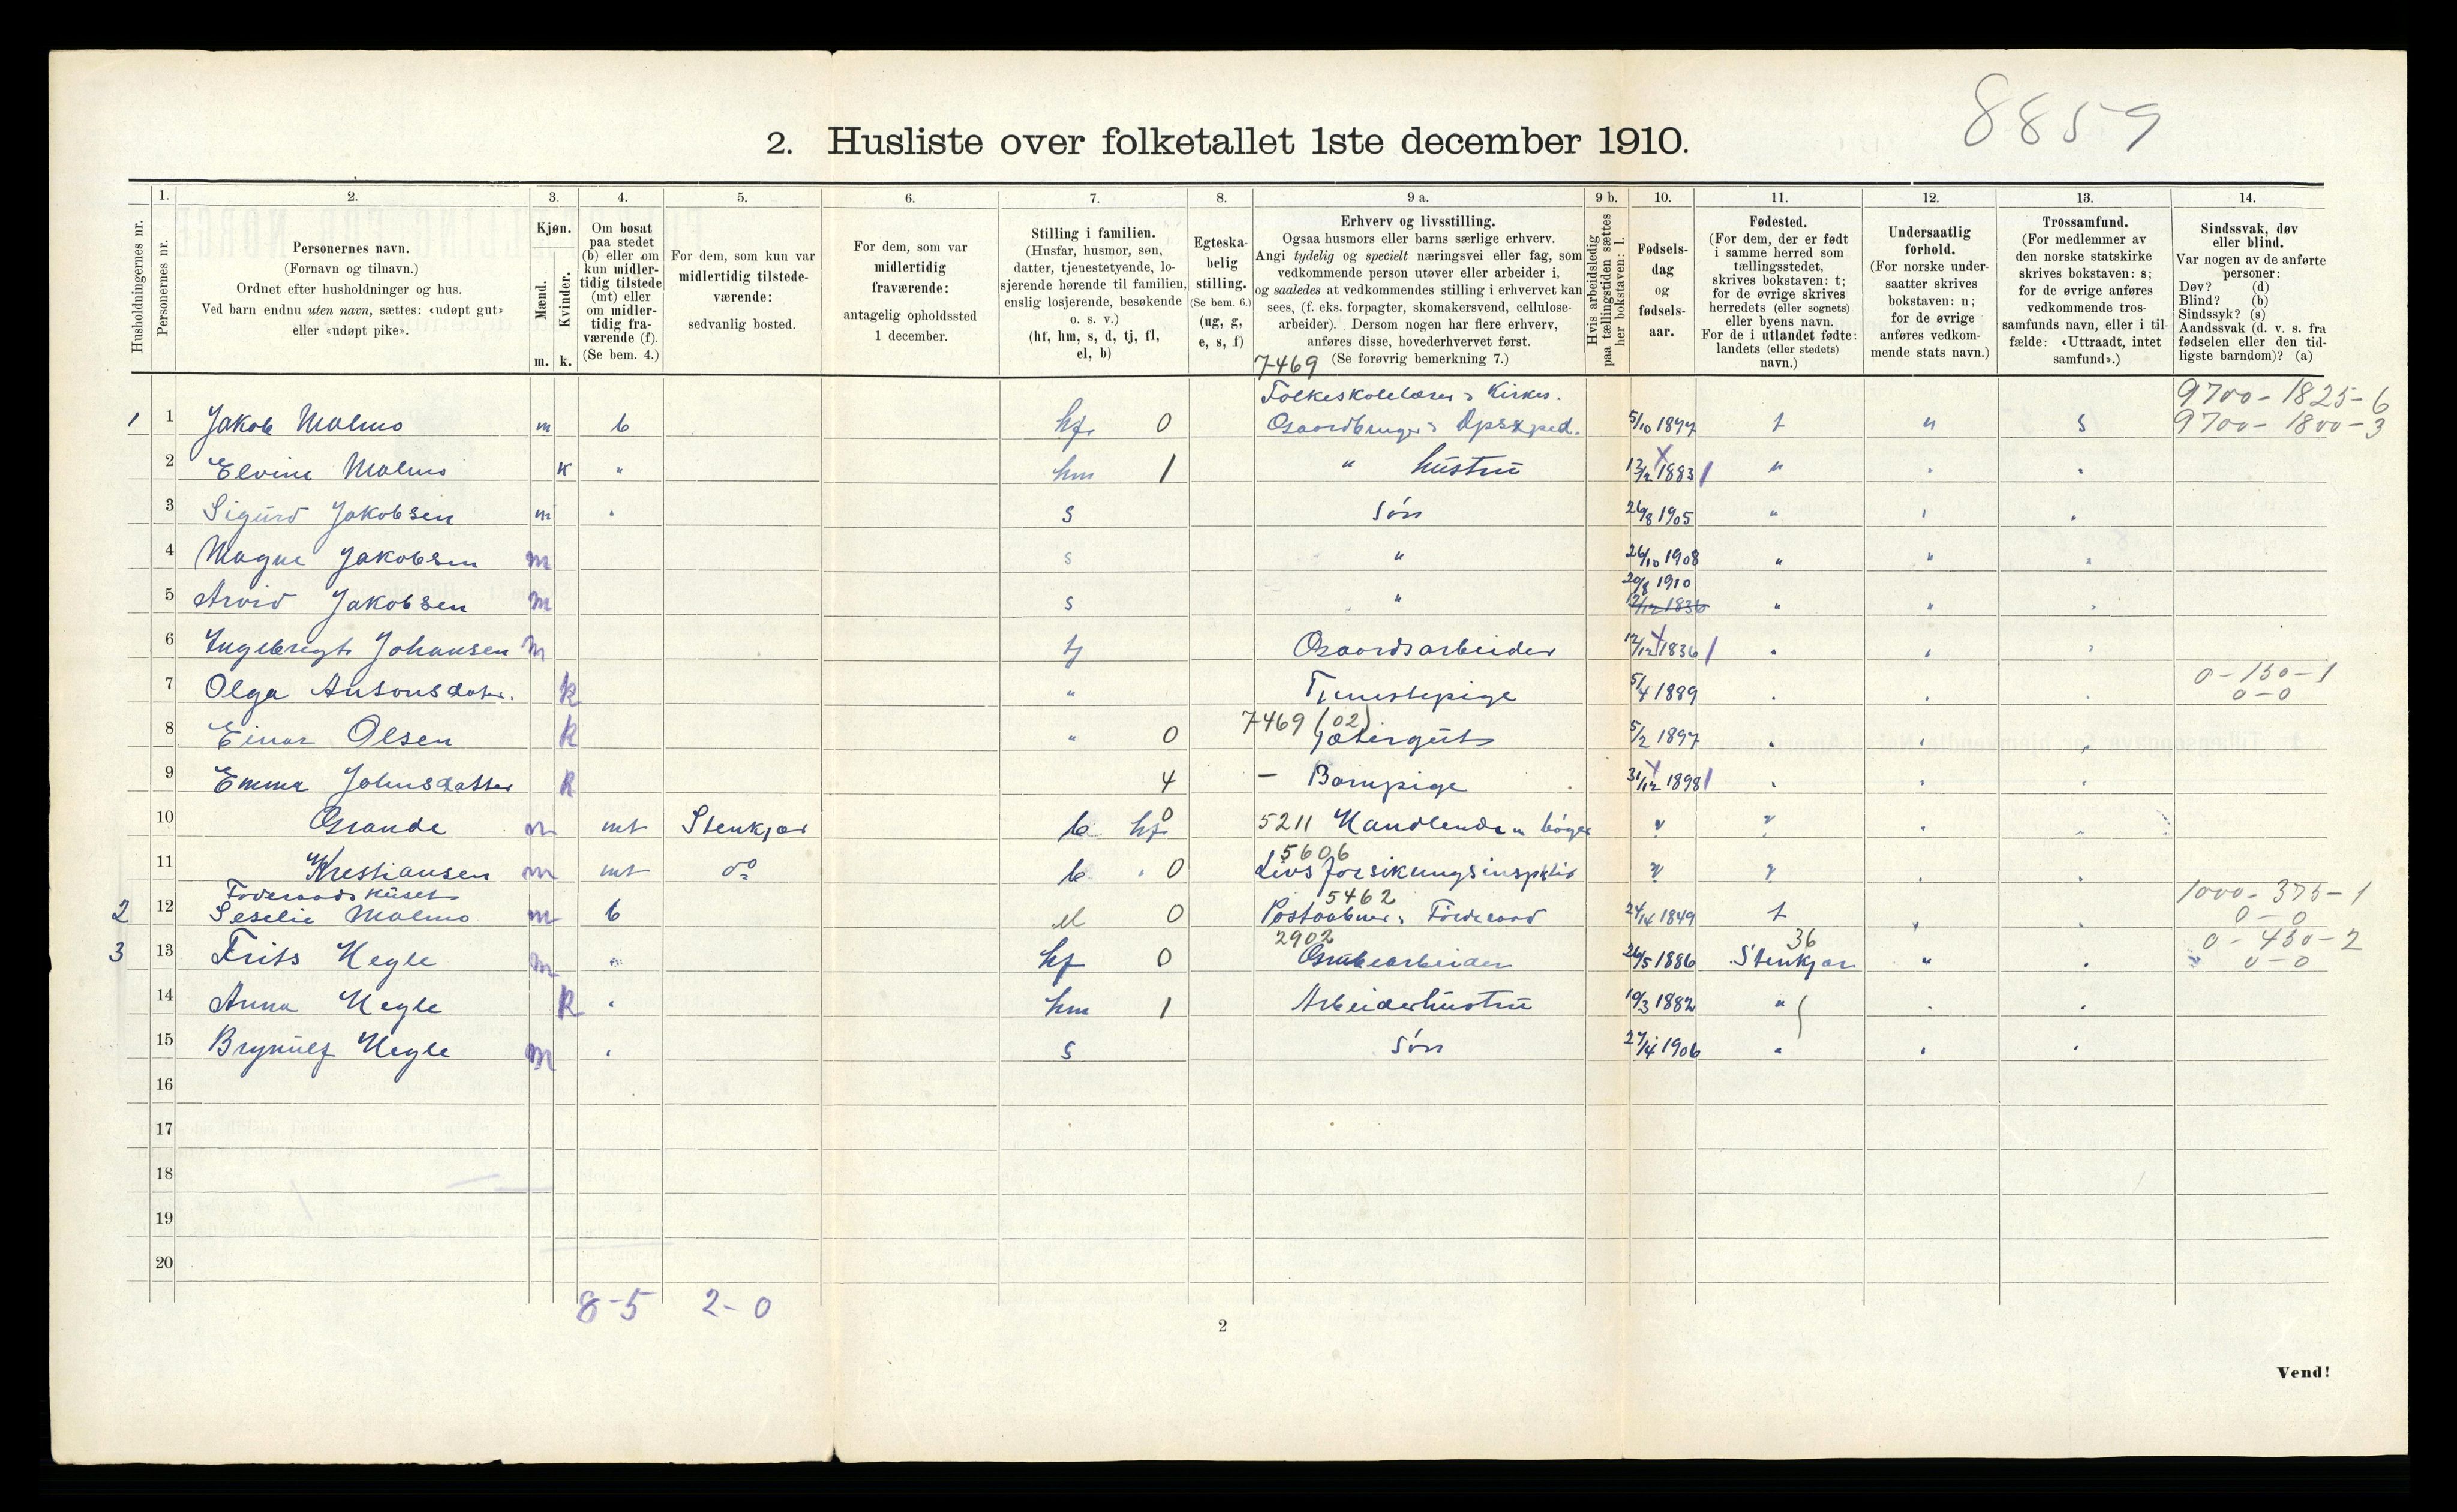 8859
2. Husliste over folketallet 1ste december 1910.
Husholdningernes nr.
1.
Personernes nr.
2.
Personernes navn.
(Fornavn og tilnavn.)
Ordnet efter husholdninger og hus.
Ved barn endnu uten navn, sættes: «udøpt gut»
eller «udøpt pike».
3.
Kjøn.
Mænd.
Kvinder.
m. k.
4.
Om bosat
paa stedet
(b) eller om
kun midler-
tidig tilstede
(mt) eller
om midler-
tidig fra-
værende (f).
(Se bem. 4.)
5.
For dem, som kun var
midlertidig tilstede-
værende:
sedvanlig bosted.
6.
For dem, som var
midlertidig
fraværende:
antagelig opholdssted
1 december.
7.
Stilling i familien.
(Husfar, husmor, søn,
datter, tjenestetyende, lo-
sjerende hørende til familien,
enslig losjerende, besøkende
o. s. v.)
(hf, hm, s, d, tj, fl,
el, b)
8.
Egteska-
belig
stilling.
(Se bem. 6.)
(ug, g,
e, s, f)
9 a.
Erhverv og livsstilling.
Ogsaa husmors eller barns særlige erhverv.
Angi tydelig og specielt næringsvei eller fag, som
vedkommende person utøver eller arbeider i,
og saaledes at vedkommendes stilling i erhvervet kan
sees, (f. eks. forpagter, skomakersvend, cellulose-
arbeider). Dersom nogen har flere erhverv,
anføres disse, hovederhvervet først.
(Se forøvrig bemerkning 7.)
7469
9 b.
Hvis arbeidsledig
paa tællingstiden sættes
her bokstaven: l.
10.
Fødsels-
dag
og
fødsels-
aar.
11.
Fødested.
(For dem, der er født
i samme herred som
tællingsstedet,
skrives bokstaven: t;
for de øvrige skrives
herredets (eller sognets)
eller byens navn.
For de i utlandet fødte:
landets (eller stedets)
navn.)
12.
Undersaatlig
forhold.
(For norske under-
saatter skrives
bokstaven: n;
for de øvrige
anføres vedkom-
mende stats navn.)
13.
Trossamfund.
(For medlemmer av
den norske statskirke
skrives bokstaven: s;
for de øvrige anføres
vedkommende tros-
samfunds navn, eller i til-
fælde: «Uttraadt, intet
samfund».)
14.
Sindssvak, døv
eller blind.
Var nogen av de anførte
personer:
Døv? (d)
Blind? (b)
Sindssyk? (s)
Aandssvak (d. v. s. fra
fødselen eller den tid-
ligste barndom)? (a)
Folkeskolelærer o Kirkes. 9700-1825-6
1 1 Jakob Malmo m b hf. 0 Gaardbruger o Dpsxped. 5/10 1877 t n s 9700-1800-3
2 Elvine Malmo k " hm 1 " hustru 12/2 1883 "
3 Sigurd Jakobsen m " s søn 26/8 1905 "
4 Magne Jakobsen m s " 26/10 1908 " " "
20/8 1910
5 Arvid Jakobsen m s " 12/12 1836 " " "
6 Ingebrigt Johansen m tj Gaardsarbeider 12/12 1836
0-150-1
7 Olga Antonsdatter. k " Tjenestepige 5/4 1889 0-0
7469 (02)
8 Einar Olsen k " 0 Gjætergut 5/2 1897
9 Emma Johnsdatter k 4 - Barnpige 31/12 1898
10 Grande m mt Stenkjær b hf 0 5211 Handlende m bøger ? ?
5606
11 Kristiansen m mt do b 0 Livsforsikringsinspektør ? ?
Foderaadshuset 5462 1000-375-1
2 12 Seselie Malmo m b el 0 Postaabner o Føderaad 24/4 1849 t 0-0
2902 36 0-450-2
3 13 Frits Hegle m " hf 0 Grubearbeider 26/5 1886 Stenkjær " 0-0
14 Anna Hegle k " hm 1 Arbeiderhustru 19/3 1882 "
15 Brynulf Hegle m " s søn 27/4 1906 "
16
17
18
19
20
8-5 2-0
2
Vend!